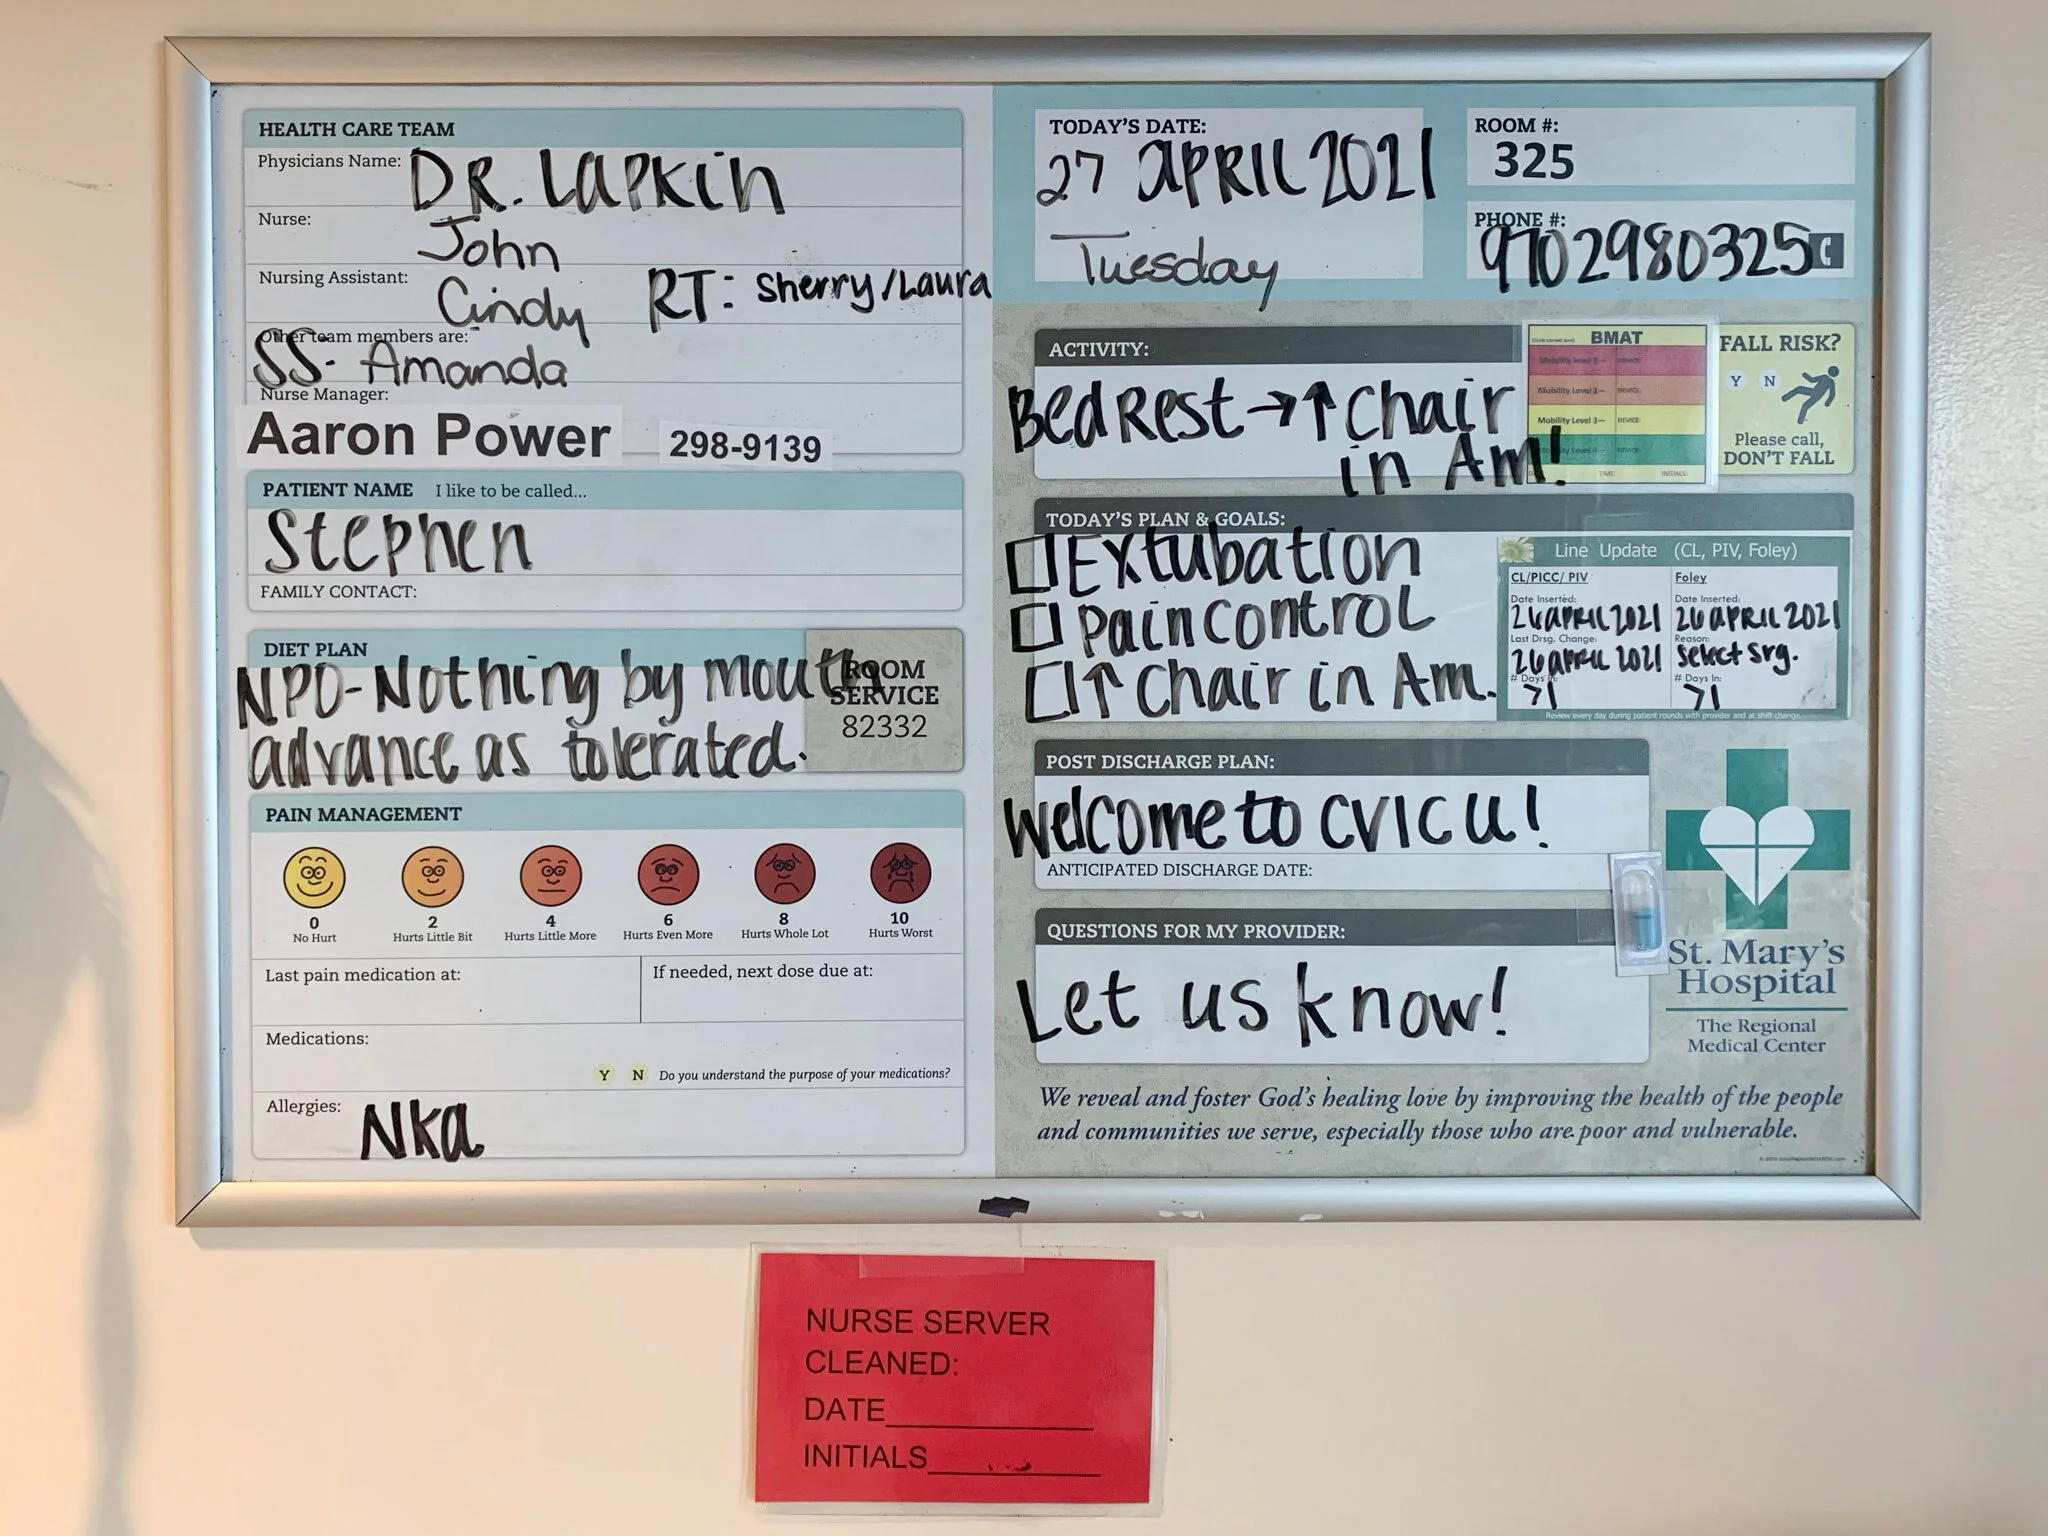 HEALTH CARE TEAM
Physicians Name: DR. Lapkin
Nurse: John
Nursing Assistant: Cindy RT: Sherry/Laura
Other team members are:
SS- Amanda
Nurse Manager:
Aaron Power 298-9139
PATIENT NAME I like to be called...
Stephen
FAMILY CONTACT:
DIET PLAN
NPO-Nothing by mouth
advance as tolerated.
ROOM
SERVICE
82332
PAIN MANAGEMENT
0 2 4 6 8 10
No Hurt Hurts Little Bit Hurts Little More Hurts Even More Hurts Whole Lot Hurts Worst
Last pain medication at: If needed, next dose due at:
Medications:
Y N Do you understand the purpose of your medications?
Allergies: Nka
TODAY'S DATE:
27 APRIL 2021
Tuesday
ROOM #:
325
PHONE #:
9702980325
ACTIVITY:
BedRest → ↑ Chair
in Am!
BMAT
Mobility Level 2— DEVICE:
Mobility Level 3— DEVICE:
TIME: INITIALS:
FALL RISK?
Y N
Please call,
DON'T FALL
TODAY'S PLAN & GOALS:
□ Extubation
□ Pain control
□ ↑ Chair in Am.
Line Update (CL, PIV, Foley)
CL/PICC/ PIV
Date Inserted:
26 APRIL 2021
Last Drsg. Change:
26 APRIL 2021
# Days In:
>1
Foley
Date Inserted:
26 APRIL 2021
Reason:
Select Srg.
# Days In:
>1
Review every day during patient rounds with provider and at shift change.
POST DISCHARGE PLAN:
Welcome to CVICU!
ANTICIPATED DISCHARGE DATE:
QUESTIONS FOR MY PROVIDER:
Let us know!
St. Mary's
Hospital
The Regional
Medical Center
We reveal and foster God's healing love by improving the health of the people
and communities we serve, especially those who are poor and vulnerable.
NURSE SERVER
CLEANED:
DATE
INITIALS